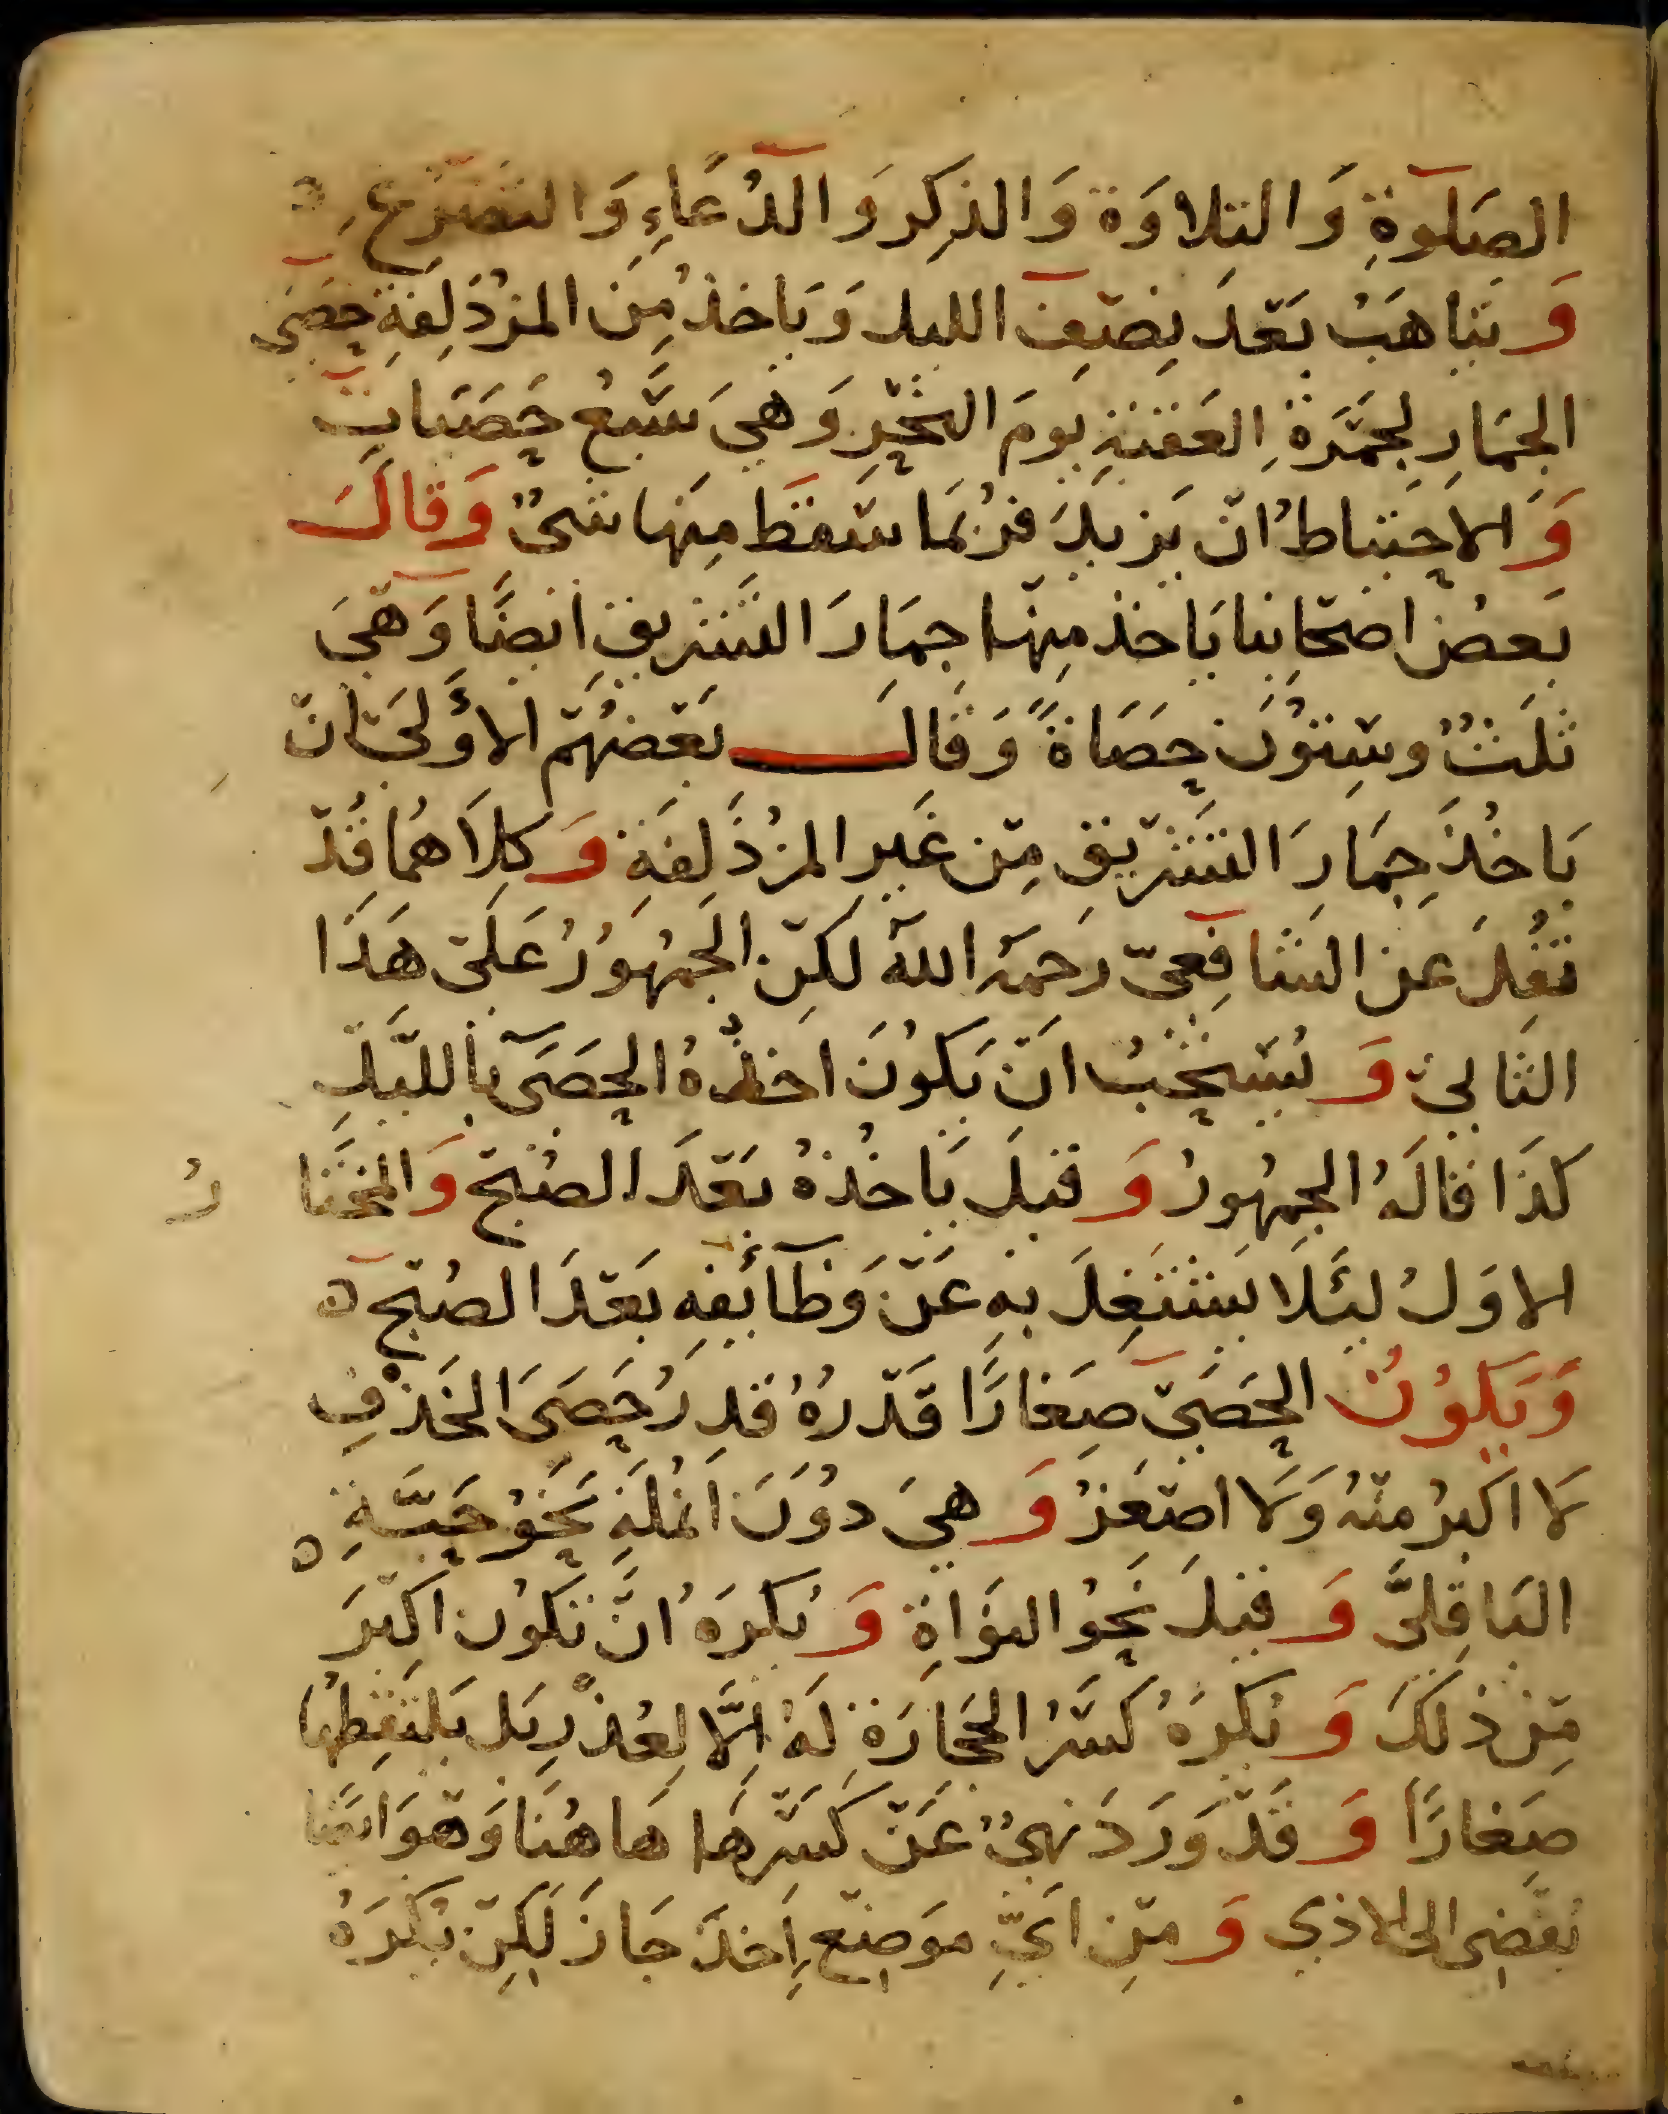 الصَلَوةِ وَالتِلاوَة وَالذِكِر وَالدُعَاءِ وَالتَضَرُّعِ ه
وَيَتَاهَبُ بَعْدَ نِصْفِ الليل وَيَاخذُ مِنَ المزْدَلِفَةِ حَصَى
الجمَارِ لجمْرَةِ العَقَبَةِ يَومَ النَّحْرِ وَهِيَ سَبْعُ حَصَيَاتٍ
وَالاحتِيَاطُ انْ يَزيدَ فرُبَمَا سَقَطَ مِنهَا شىٌ وَقَالَ
بَعضُ اصْحَابِنا يَاخذ مِنْهَا جِمَارَ التَشْرِيقِ ايضًا وَهْيَ
ثَلَثٌ وسِتوُنَ حَصَاةً وَقَالَ بَعْضُهُمْ الاوَّلَىْ انْ
يَاخُذَ جِمَارَ التَشْرِيْقِ مِنْ غَيرِ المزْدَلِفَةِ وَكِلَاهُمَا قَدْ
نُقِلَ عَنِ الشَافِعيّ رَحمَهُ اللهُ لَكِنْ الجَمْهوُرُ عَلَىْ هَذَا
الثَانِيْ وَيُسْتَحَبُ انْ يَكُونَ اخذُهُ الحَصَى بالليْلِ
كَذَا قَالَهُ الجمهُورُ وَقيلَ يَاخُذهُ بَعْدَ الصُبْحِ وَالمختَا رُ
الاوَلُ لئَلَا يَشْتَغِلَ بهِ عَنْ وَظَائفِهِ بَعْدَ الصُبْحِ ه
وَيَكُوُنُ الحَصَىْ صِغارًا قَدْرُهُ قَدرُ حَصَى الخَذْفِ
لَا اكبرُ منْهُ وَلَا اصْغَرُ وَهيَ دوُنَ انمُلَةٍ نَحوُ حَبَّةِ
البَاقِلىَّ وَقيلَ نَحوُ النوَاةِ وَيُكرَهُ انْ تَكُونَ اكبَرَ
مِنْ ذلكَ وَيُكرَهُ كَسْرُ الحجَارَةِ لَهُ اِلَّا لِعُذْرٍ بَل يَلتَقِطُهَا
صِغَارًا وَقَدْ وَرَدَ نَهيٌ عَنْ كَسْرِهَا هَاهُنَا وَهوَ ايضًا
يُفْضِى الى الاذى وَمِنْ ايِّ مَوضِعٍ اَخذَ جَازَ لَكِنْ يُكرَهُ